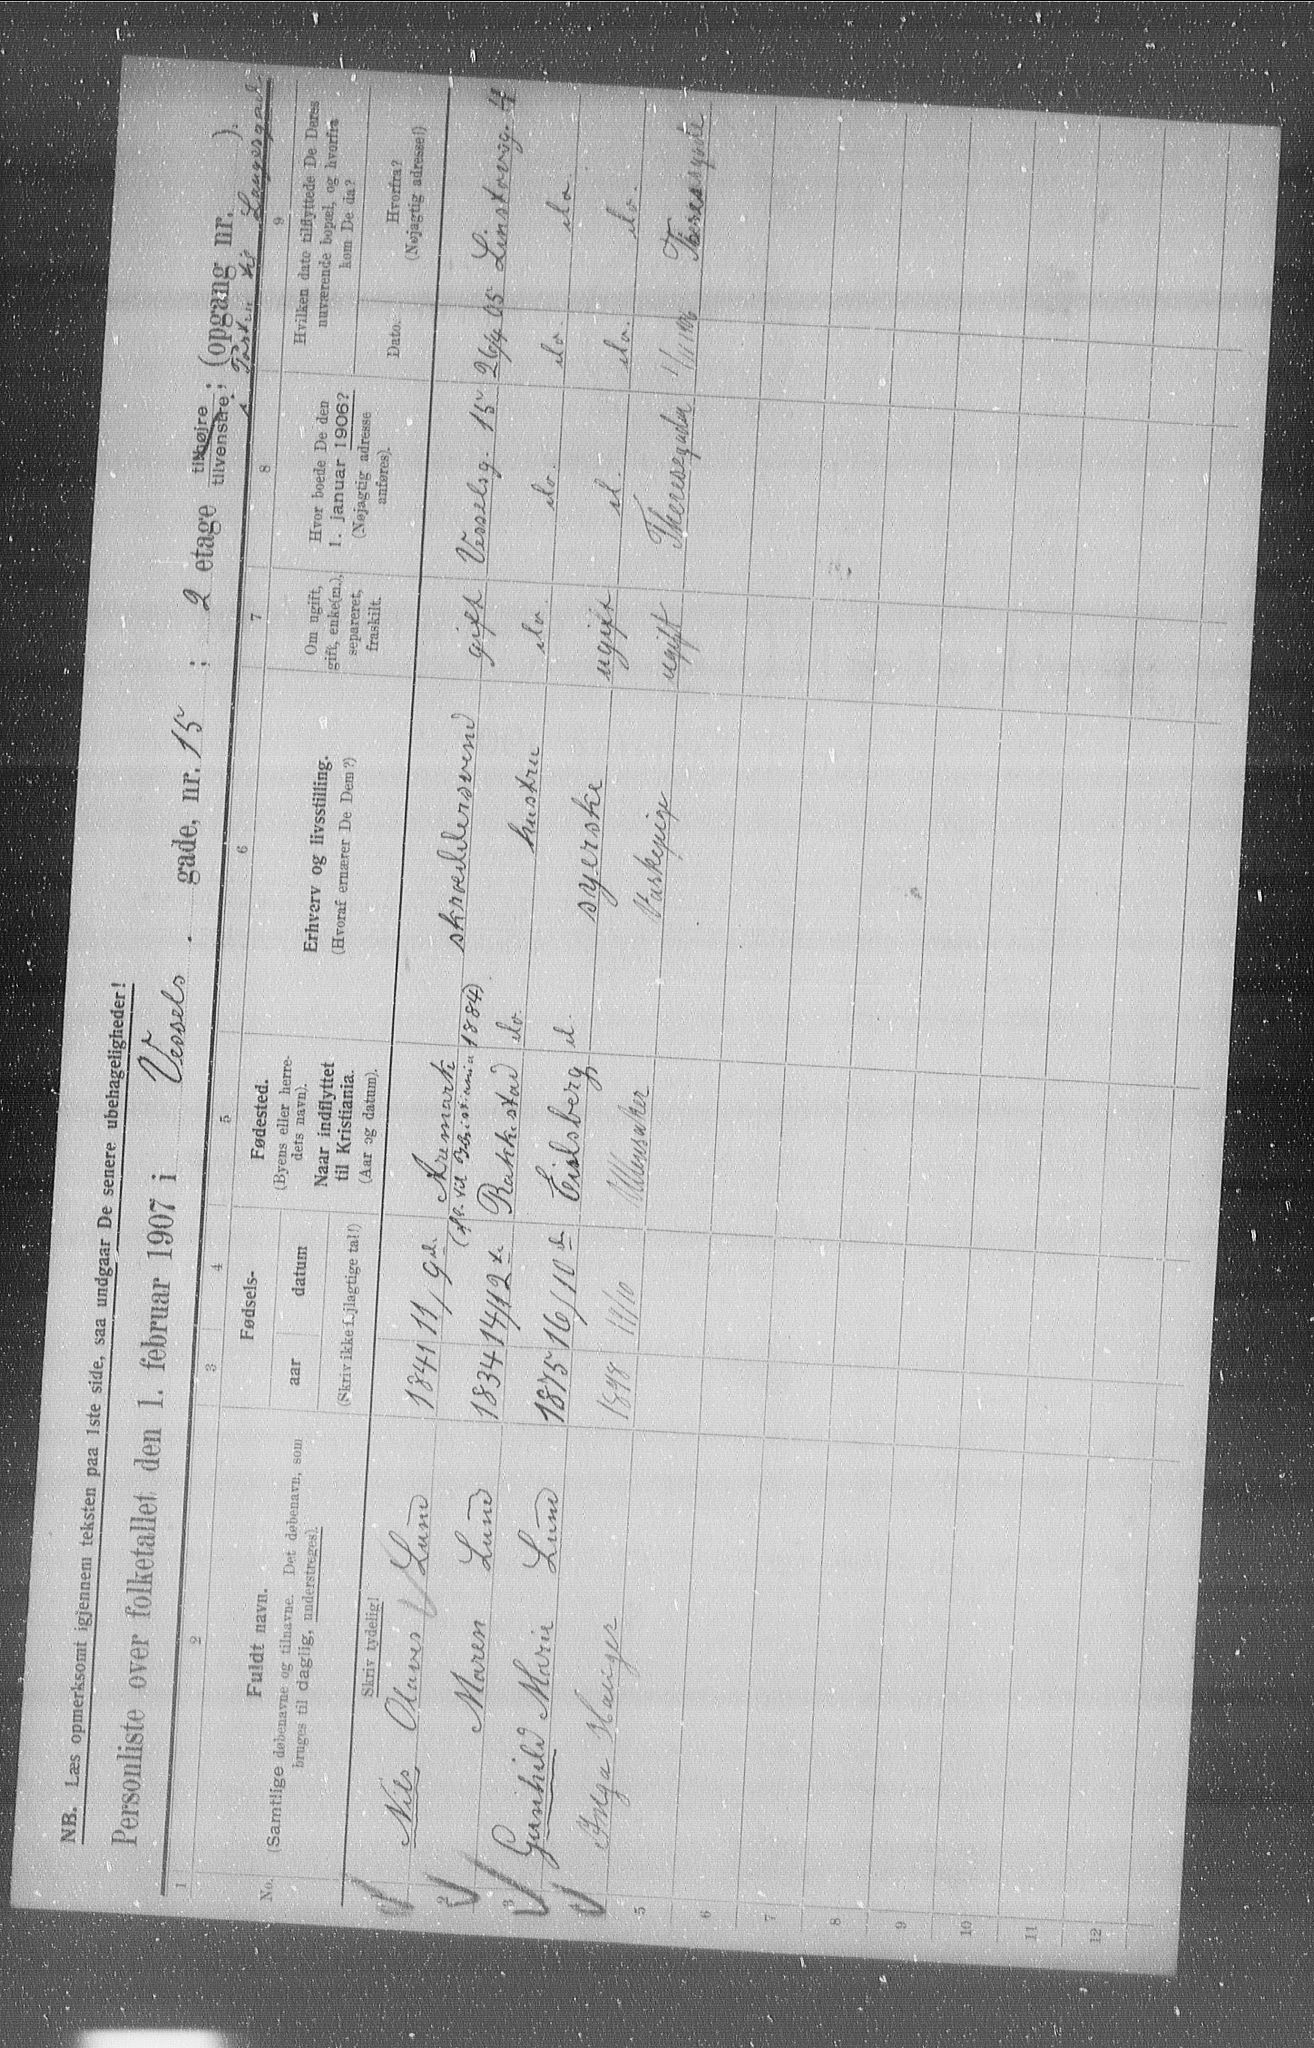 NB. Læs opmerksomt igjennem teksten paa 1ste side, saa undgaar De senere ubehageligheder!
Personliste over folketallet den 1. februar 1907 i Vessels gade, nr. 15 ; 2 etage tilhøjre tilvenstre; (opgang nr. ).
1 2 3 4 5 6 7 8 9
No.
Fuldt navn.
(Samtlige døbenavne og tilnavne. Det døbenavn, som
bruges til daglig, understreges).
Skriv tydelig!
Fødsels-
aar datum
(Skriv ikke fejlagtige tal!)
Fødested.
(Byens eller herre-
dets navn).
Naar indflyttet
til Kristiania.
(Aar og datum).
Erhverv og livsstilling.
(Hvoraf ernærer De Dem?)
Om ugift,
gift, enke(m.),
separeret,
fraskilt.
Hvor boede De den
1. januar 1906?
(Nøjagtig adresse
anføres).
Hvilken dato tilflyttede De Deres
nuværende bopæl, og hvorfra
kom De da?
Dato. Hvorfra?
(Nøjagtig adresse!)
1 Nils Olaves Lund 1841 11/9 d. Aremark skrædersvend gift Vesselsg. 15 26/4 05 Linstovsg. 4
(fl. til Kristiania 1884)
2 Maren Lund 1834 14/12 Rakkestad do. hustru do. do. do. do.
3 Gunhild Marie Lund 1875 16/10 Eidsberg d. syerske ugift d. do. do.
Inga Hauger 1878 19/10 Ullensaker Vaskepige ugift Theresegaden 1/11 1906
5
6
7
8
9
10
11
12